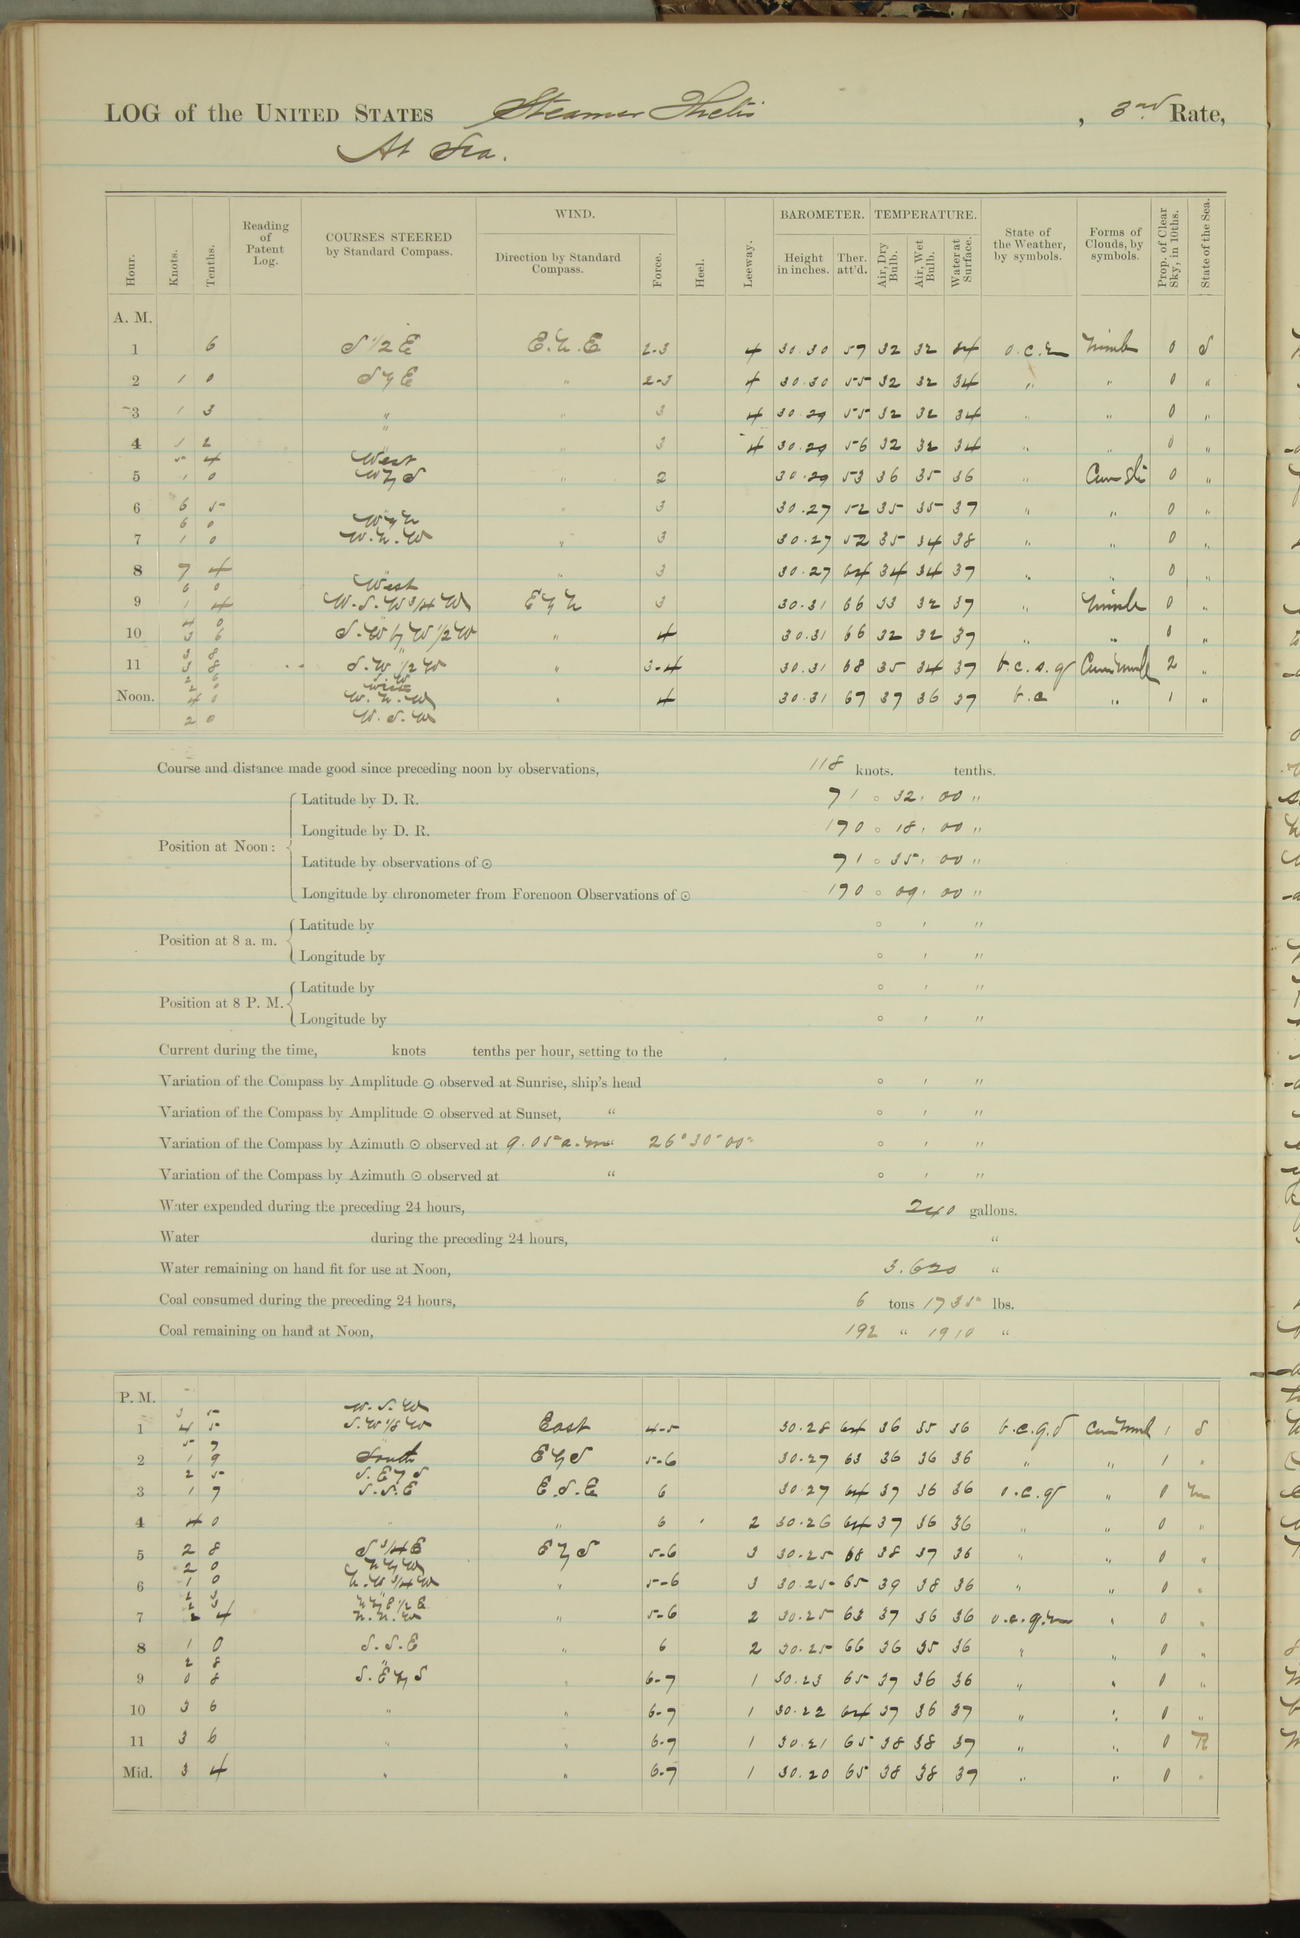 LOG of the UNITED STATES Steamer Thetis, 3rd Rate,
At Sea.
Hour. Knots. Tenths. Reading of Patent Log. COURSES STEERED by Standard Compass. WIND. Direction by Standard Compass. Force. Heel. Leeway. BAROMETER. Height in inches. Ther. att'd. TEMPERATURE. Air, Dry Bulb. Air, Wet Bulb. Water at Surface. State of the Weather, by symbols. Forms of Clouds, by symbols. Prop. of Clear Sky, in 10ths. State of the Sea.
A. M.
1 6 S 1/2 E E.N.E 2-3 4 30.30 57 32 32 34 o.c.r Nimb 0 S
2 1 0 S y E " 2-3 4 30.30 55 32 32 34 " " 0 "
3 1 3 " " 3 4 30.29 55 32 32 34 " " 0 "
4 1 2 " " 3 4 30.29 56 32 32 34 " " 0 "
5 4 West
5 1 0 W y S " 2 30.29 53 36 35 36 " Cum Str 0 "
6 6 5 " 3 30.27 52 35 35 37 " " 0 "
6 0 W y N
7 1 0 W.N.W " 3 30.27 52 35 34 38 " " 0 "
8 7 4 " 3 30.27 64 34 34 37 " " 0 "
6 0 West
9 1 4 W.S.W 3/4 W E y N 3 30.31 66 33 32 37 " Nimb 0 "
4 0
10 3 6 S.W y W 1/2 W " 4 30.31 66 32 32 37 " " 0 "
3 8 "
11 3 8 S.W 1/2 W " 3-4 30.31 68 35 34 37 b.c.s.q Cum Nimb 2 "
2 6 S.W
West
Noon. 4 0 W.N.W " 4 30.31 67 37 36 37 b.c " 1 "
2 0 W.S.W
Course and distance made good since preceding noon by observations, 118 knots. tenths.
Position at Noon: Latitude by D. R. 71 ° 32 ' 00 "
Longitude by D. R. 170 ° 18 ' 00 "
Latitude by observations of ☉ 71 ° 35 ' 00 "
Longitude by chronometer from Forenoon Observations of ☉ 170 ° 09 ' 00 "
Position at 8 a. m. Latitude by ° ' "
Longitude by ° ' "
Position at 8 P. M. Latitude by ° ' "
Longitude by ° ' "
Current during the time, knots tenths per hour, setting to the .
Variation of the Compass by Amplitude ☉ observed at Sunrise, ship's head ° ' "
Variation of the Compass by Amplitude ☉ observed at Sunset, " ° ' "
Variation of the Compass by Azimuth ☉ observed at 9.05 a.m " 26° 30' 00" ° ' "
Variation of the Compass by Azimuth ☉ observed at " ° ' "
Water expended during the preceding 24 hours, 240 gallons.
Water during the preceding 24 hours, "
Water remaining on hand fit for use at Noon, 3.620 "
Coal consumed during the preceding 24 hours, 6 tons 1735 lbs.
Coal remaining on hand at Noon, 192 " 1910 "
P. M.
3 5 W.S.W
1 4 5 S.W 1/2 W East 4-5 30.28 64 36 35 36 b.c.q.s Cum Nimb 1 S
5 7 "
2 1 9 South E y S 5-6 30.27 63 36 36 36 " " 1 "
2 5 S.E y S
3 1 7 S.S.E E.S.E 6 30.27 64 37 36 36 o.c.q " 0 M
4 4 0 " " 6 2 30.26 64 37 36 36 " " 0 "
5 2 8 S 3/4 E E y S 5-6 3 30.25 68 38 37 36 " " 0 "
2 0 N y W
6 1 0 N.W 3/4 W " 5-6 3 30.25 65 39 38 36 " " 0 "
N y E 1/2 E
7 2 4 N.N.W " 5-6 2 30.25 63 37 36 36 o.c.q.m " 0 "
8 1 0 S.S.E " 6 2 30.25 66 36 35 36 " 0 "
2 8 "
9 0 8 S.E y S " 6-7 1 30.23 65 37 36 36 " " 0 "
10 3 6 " " 6-7 1 30.22 64 37 36 37 " " 0 "
11 3 6 " " 6-7 1 30.21 65 38 38 37 " " 0 R
Mid. 3 4 " " 6-7 1 30.20 65 38 38 37 " " 0 "